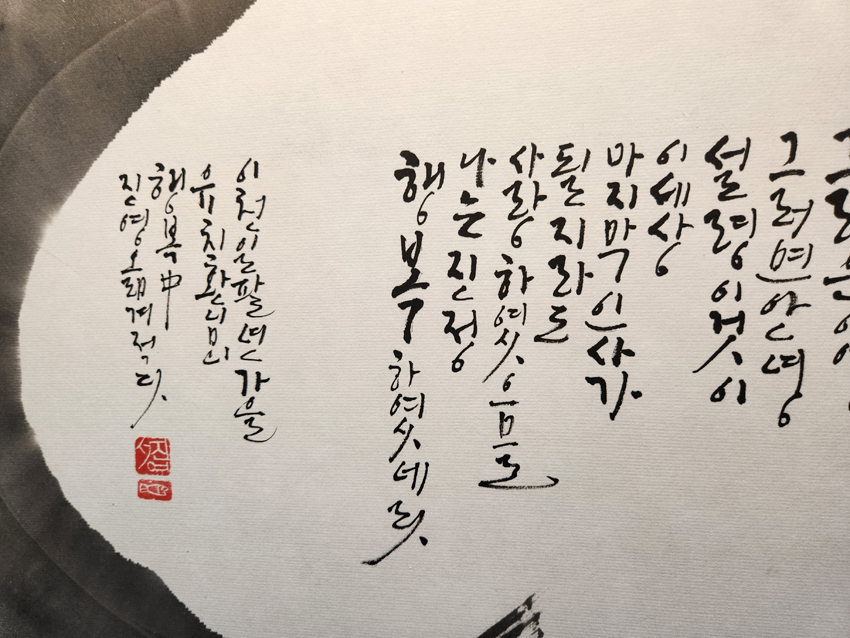 그러면 안녕
설령 이것이
이 세상
마지막 인사가
될지라도
사랑하였으므로
나는 진정
행복하였네라
이천일팔년 가을
유치환님의
행복 中
적다